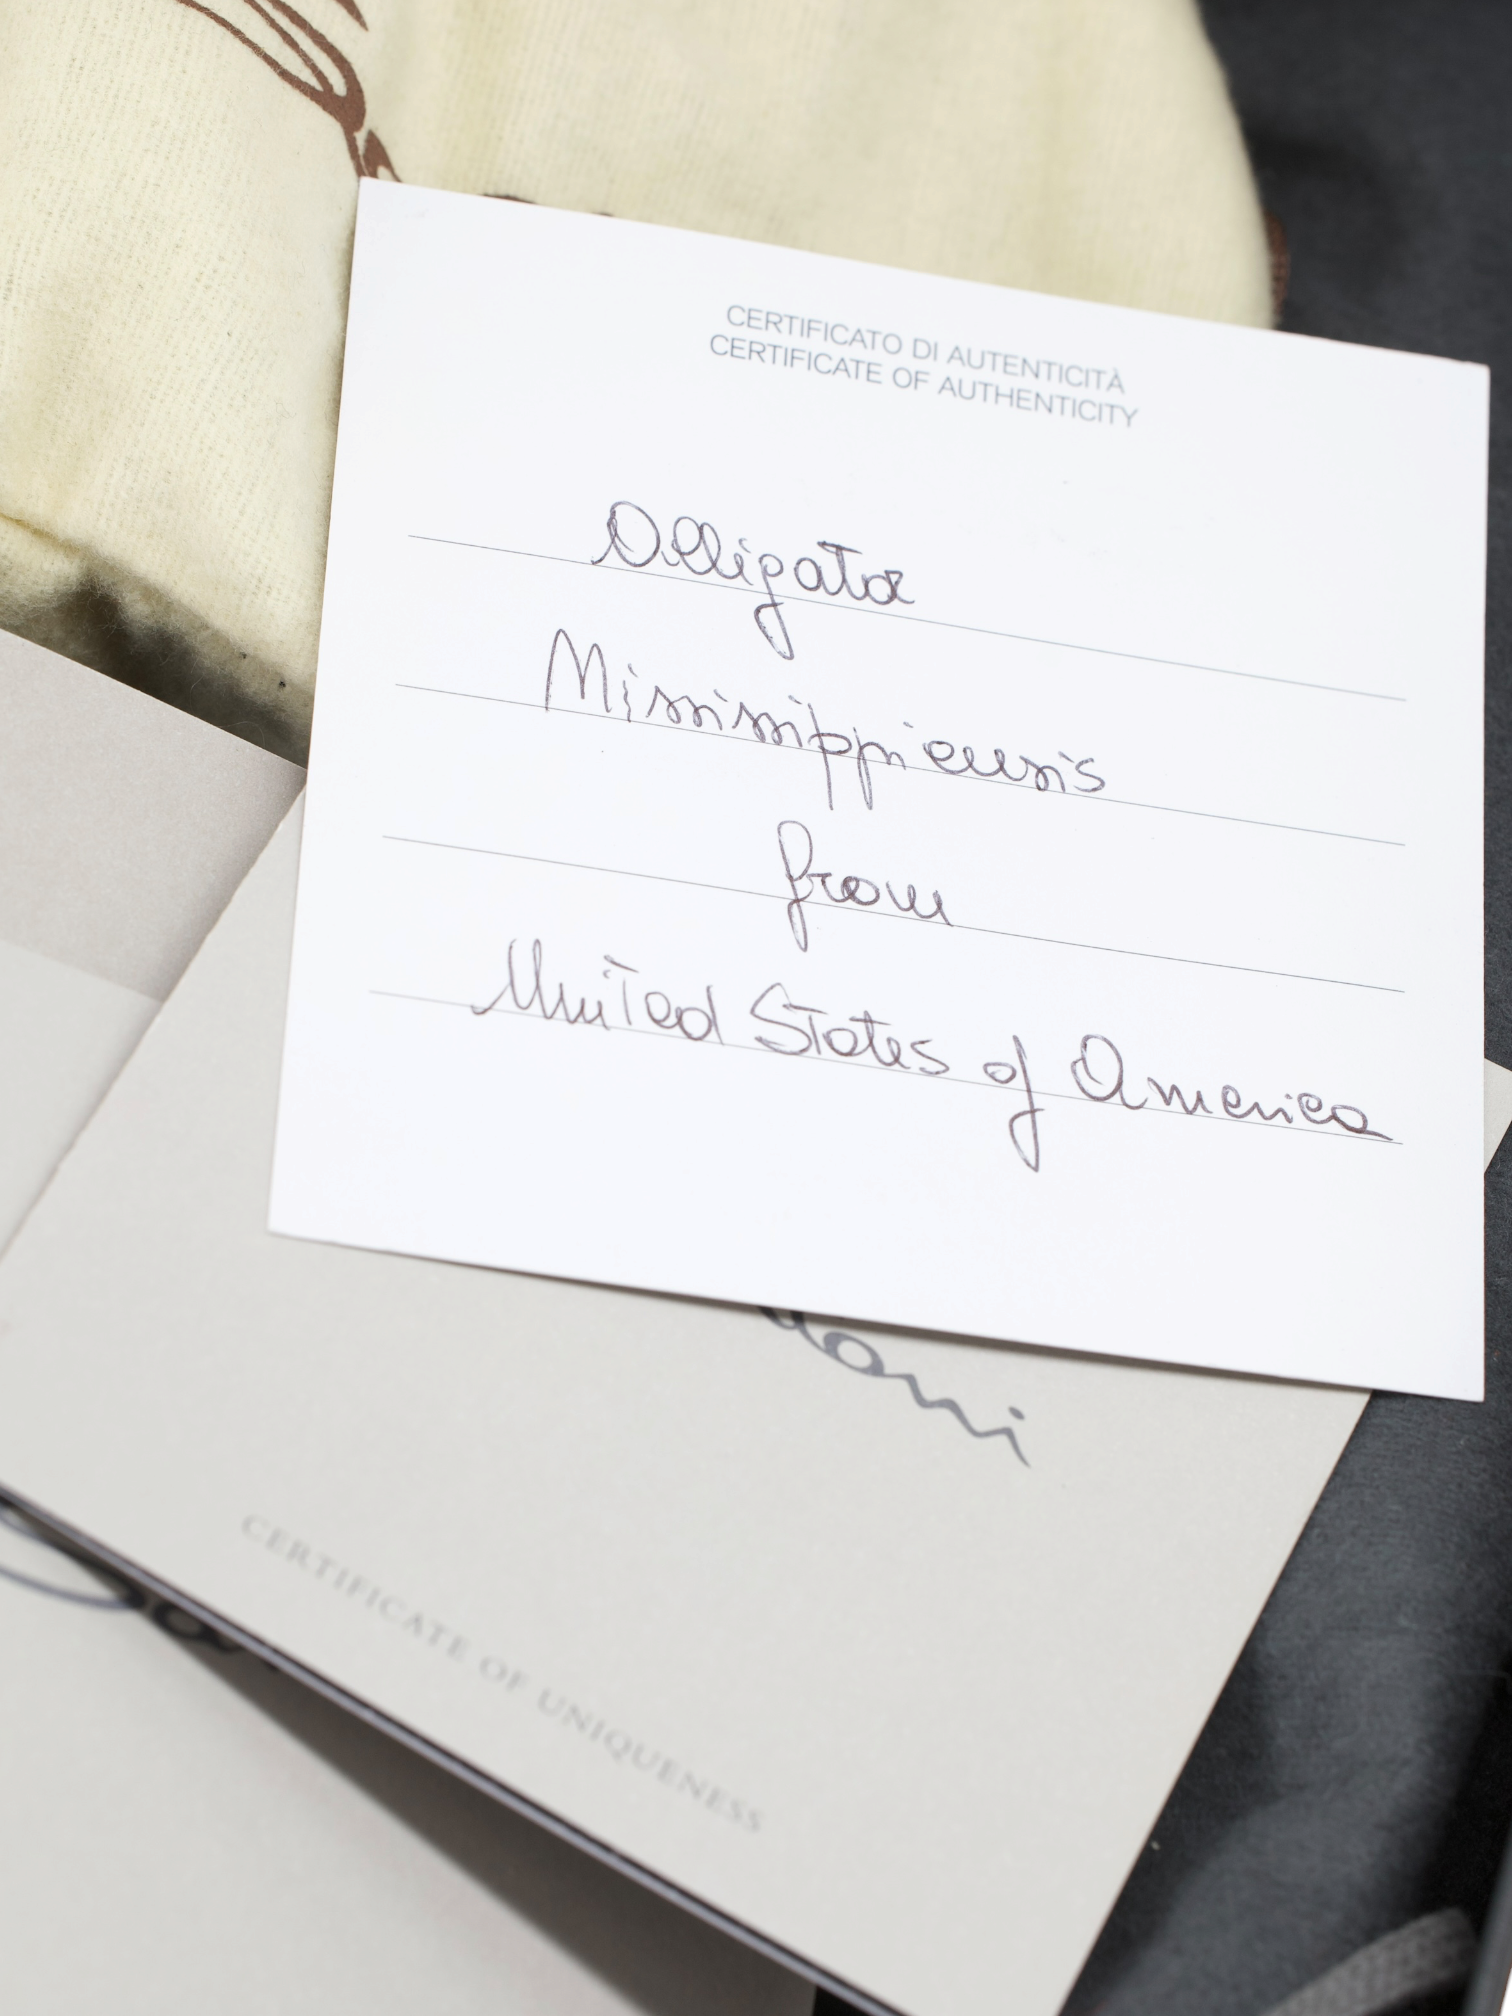 CERTIFICATO DI AUTENTICITÀ
CERTIFICATE OF AUTHENTICITY
Alligator
Mississippiensis
from
United States of America
CERTIFICATE OF UNIQUENESS